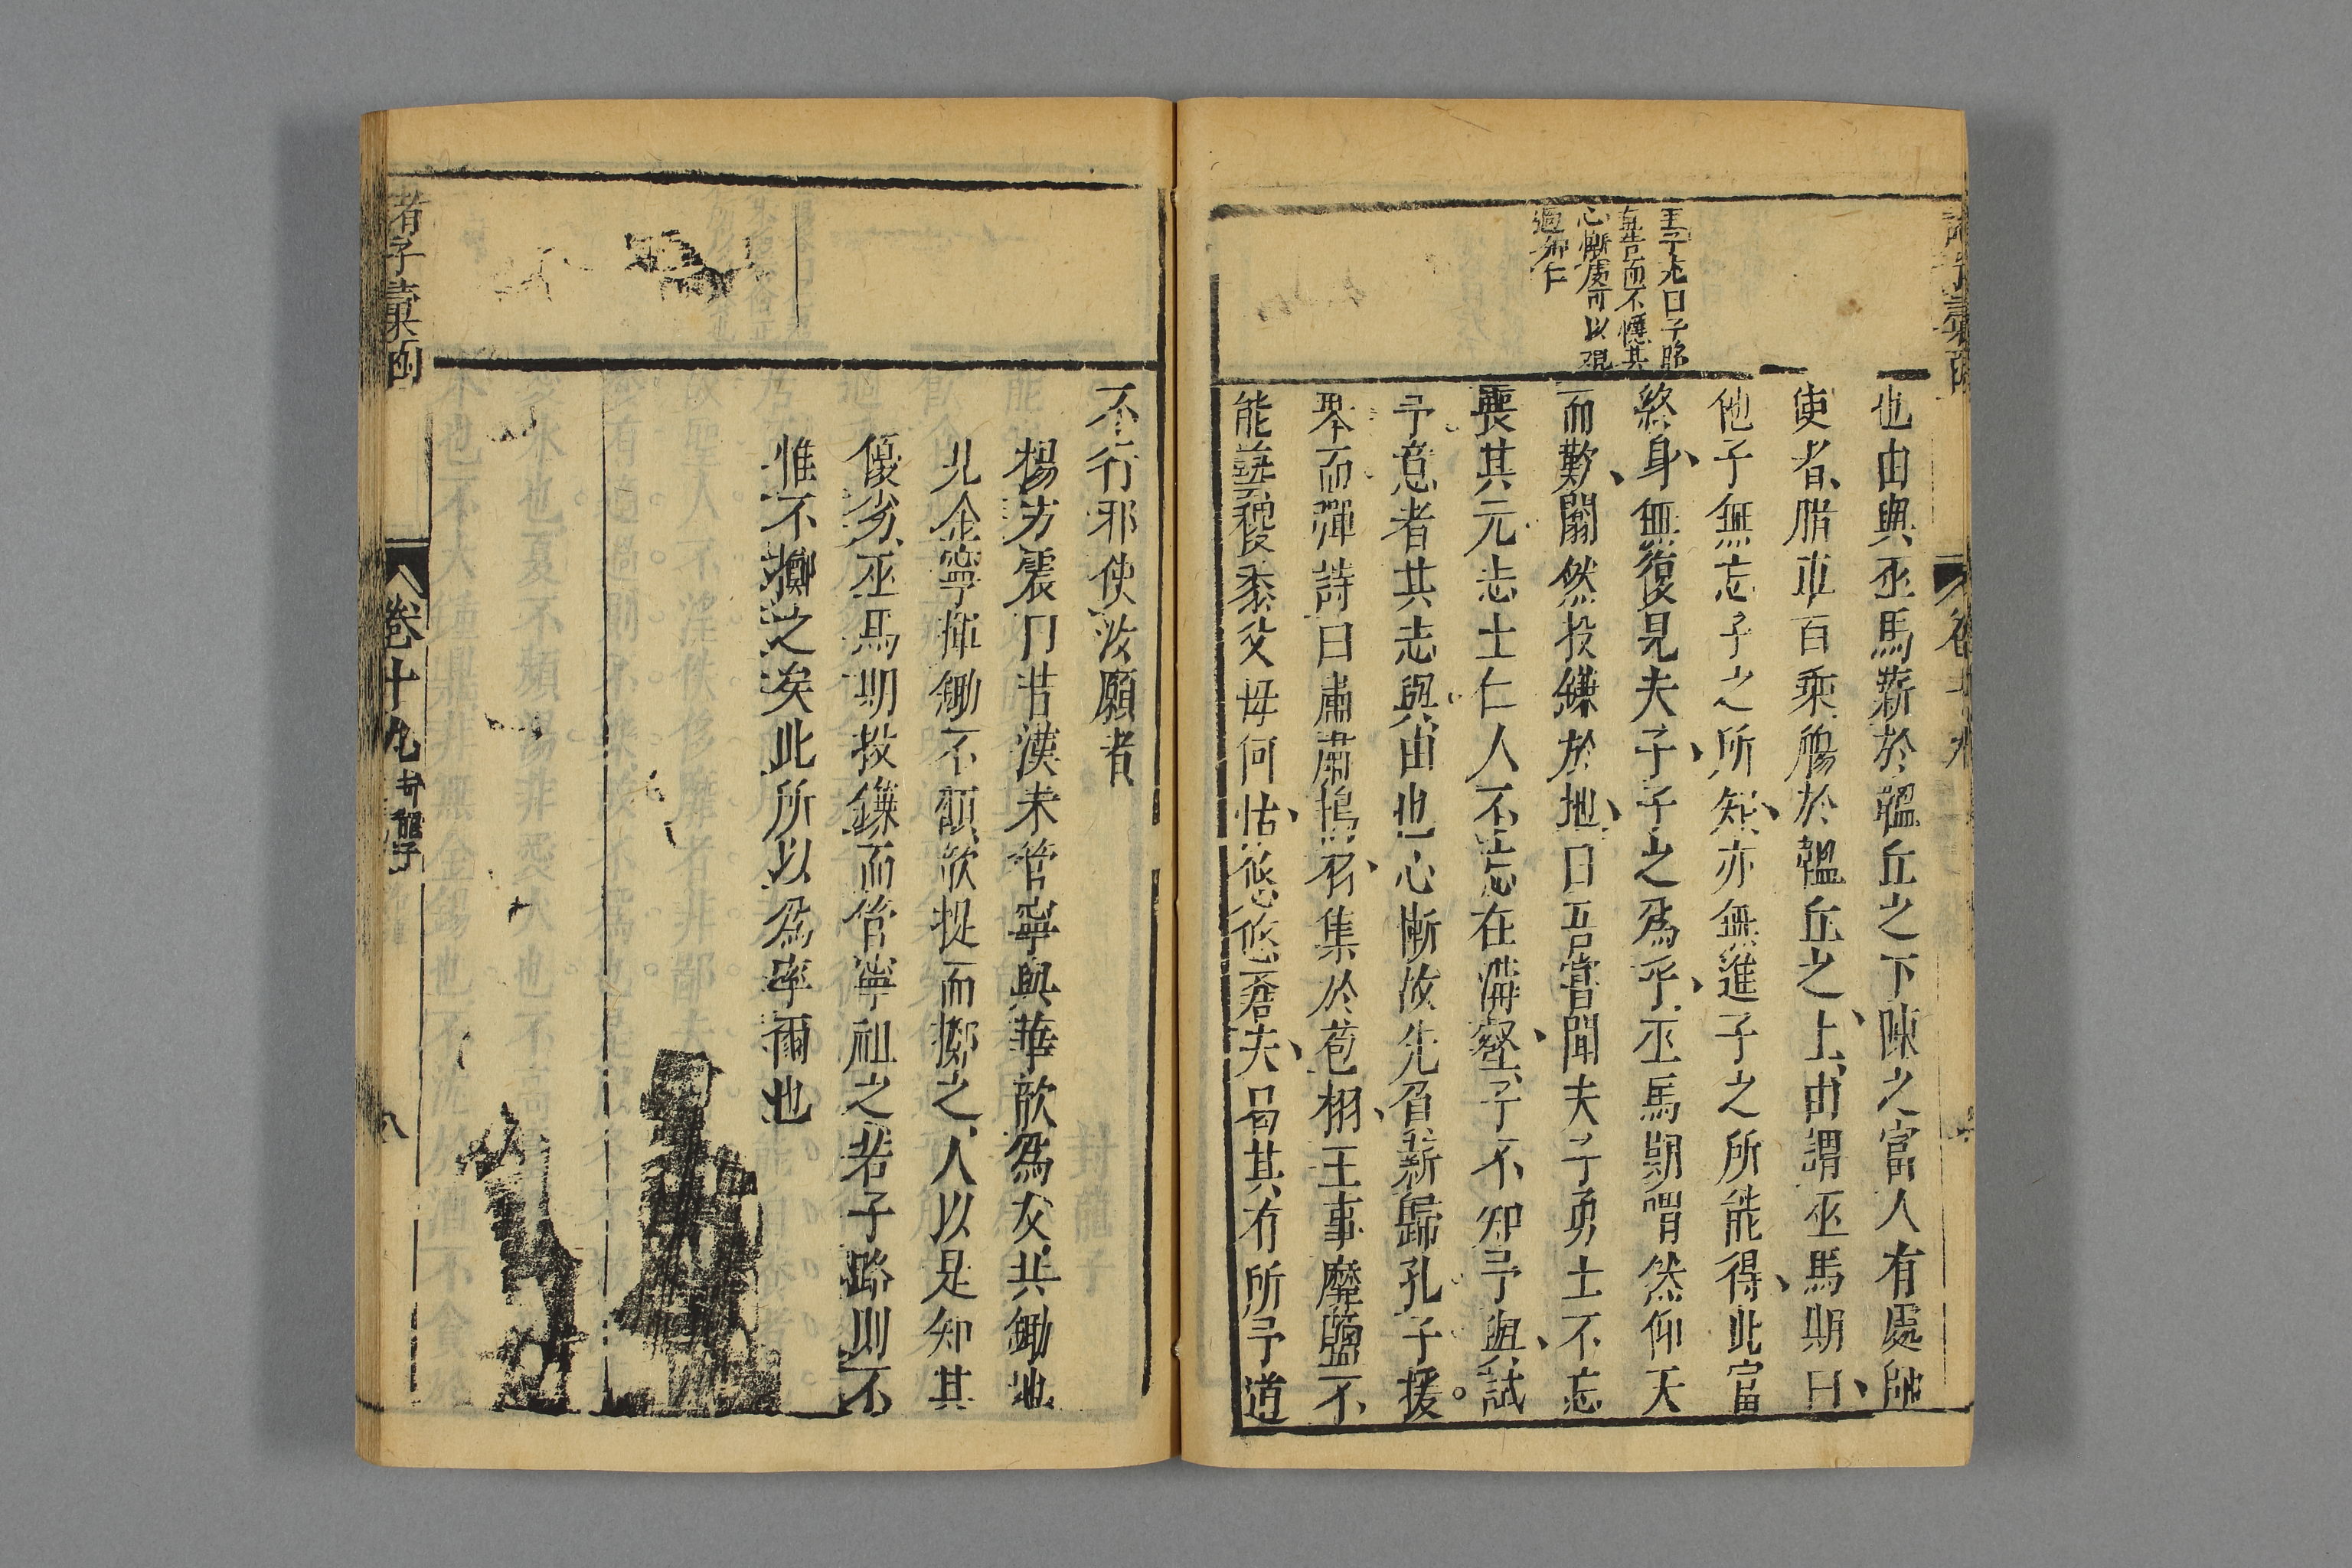 諸子彙函
卷十九
王子充曰子路
直告而不慝其
心慚處可以覘
過知仁
也由與巫馬薪於韞丘之下陳之富人有處師
使者脂車百乘觴於韞丘之上由謂巫馬期曰
他子無忘子之所知亦無進子之所能得此富
終身無復見夫子子之爲乎巫馬期喟然仰天
而歎闟然投鎌於地曰吾嘗聞夫子勇士不忘
喪其元志士仁人不忘在溝壑子不知予與試
予意者其志與由也心慚故先負薪歸孔子援
琴而彈詩曰肅肅鴇羽集於苞栩王事靡盬不
能蓺稷黍父母何怙悠悠蒼天曷其有所予道
不行邪使汝願者
楊方震曰昔漢末管寧與華歆爲友共鋤地
見金寧揮鋤不顧歆捉而擲之人以是知其
優劣巫馬期投鎌而管寧祖之若子路則不
惟不擲之矣此所以爲率爾也
諸子彙函
卷十九
封龍子
八